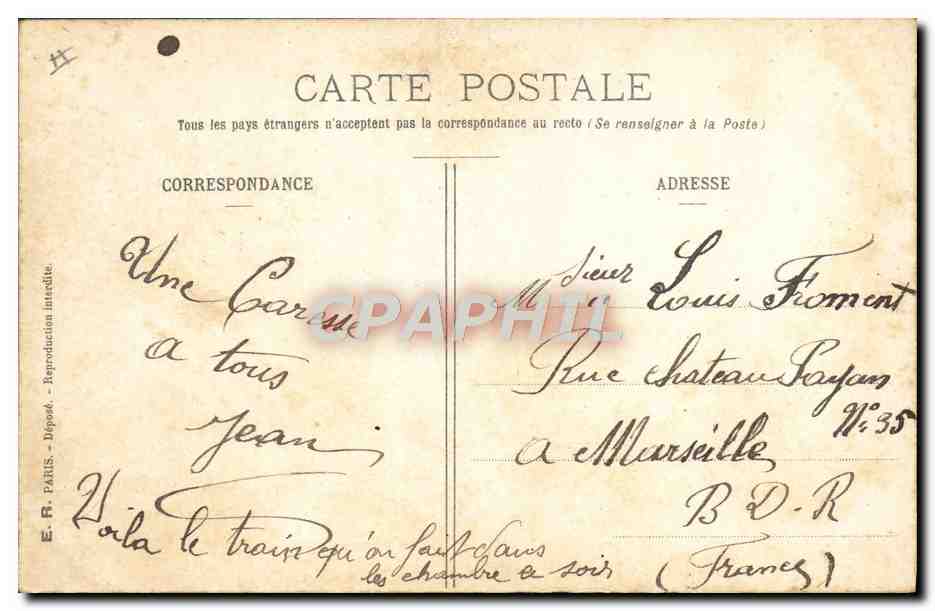 CARTE POSTALE
Tous les pays étrangers n'acceptent pas la correspondance au recto (Se renseigner à la Poste)
CORRESPONDANCE
Une Caresse
a tous
Jean
Voila le train qu'on fait dans
les chambre a soir
ADRESSE
Msieur Louis Froment
Rue chateau Payan
N° 35
a Marseille
B D-R
(France)
E. R. PARIS. - Déposé. - Reproduction interdite.
CPAPHIL